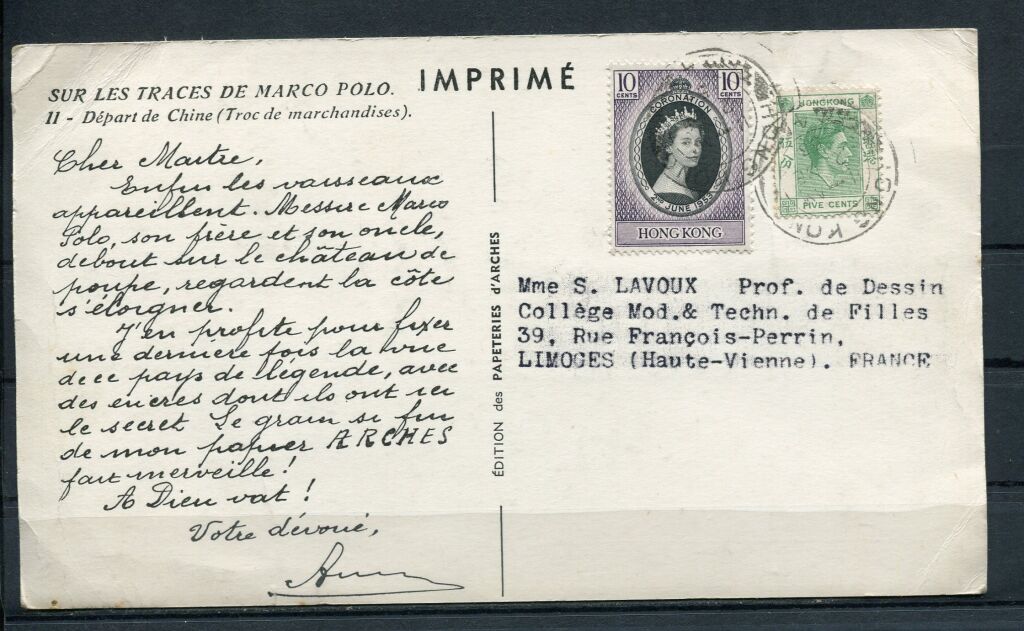 IMPRIMÉ
SUR LES TRACES DE MARCO POLO.
II - Départ de Chine (Troc de marchandises).
Cher Maitre,
Enfin les vaisseaux
appareillent. Messire Marco
Polo, son frère et son oncle,
debout sur le château de
poupe, regardent la côte
s'éloigner.
J'en profite pour fixer
une dernière fois la vue
de ce pays de légende, avec
des encres dont ils ont ici
le secret. Le grain si fin
de mon papier ARCHES
fait merveille !
A Dieu vat !
Votre dévoué,
ÉDITION des PAPETERIES d'ARCHES
10 CENTS
10 CENTS
CORONATION
2ND JUNE 1953
HONG KONG
HONGKONG
FIVE CENTS
HONG KONG
Mme S. LAVOUX Prof. de Dessin
Collège Mod.& Techn. de Filles
39, Rue François-Perrin,
LIMOGES (Haute-Vienne). FRANCE